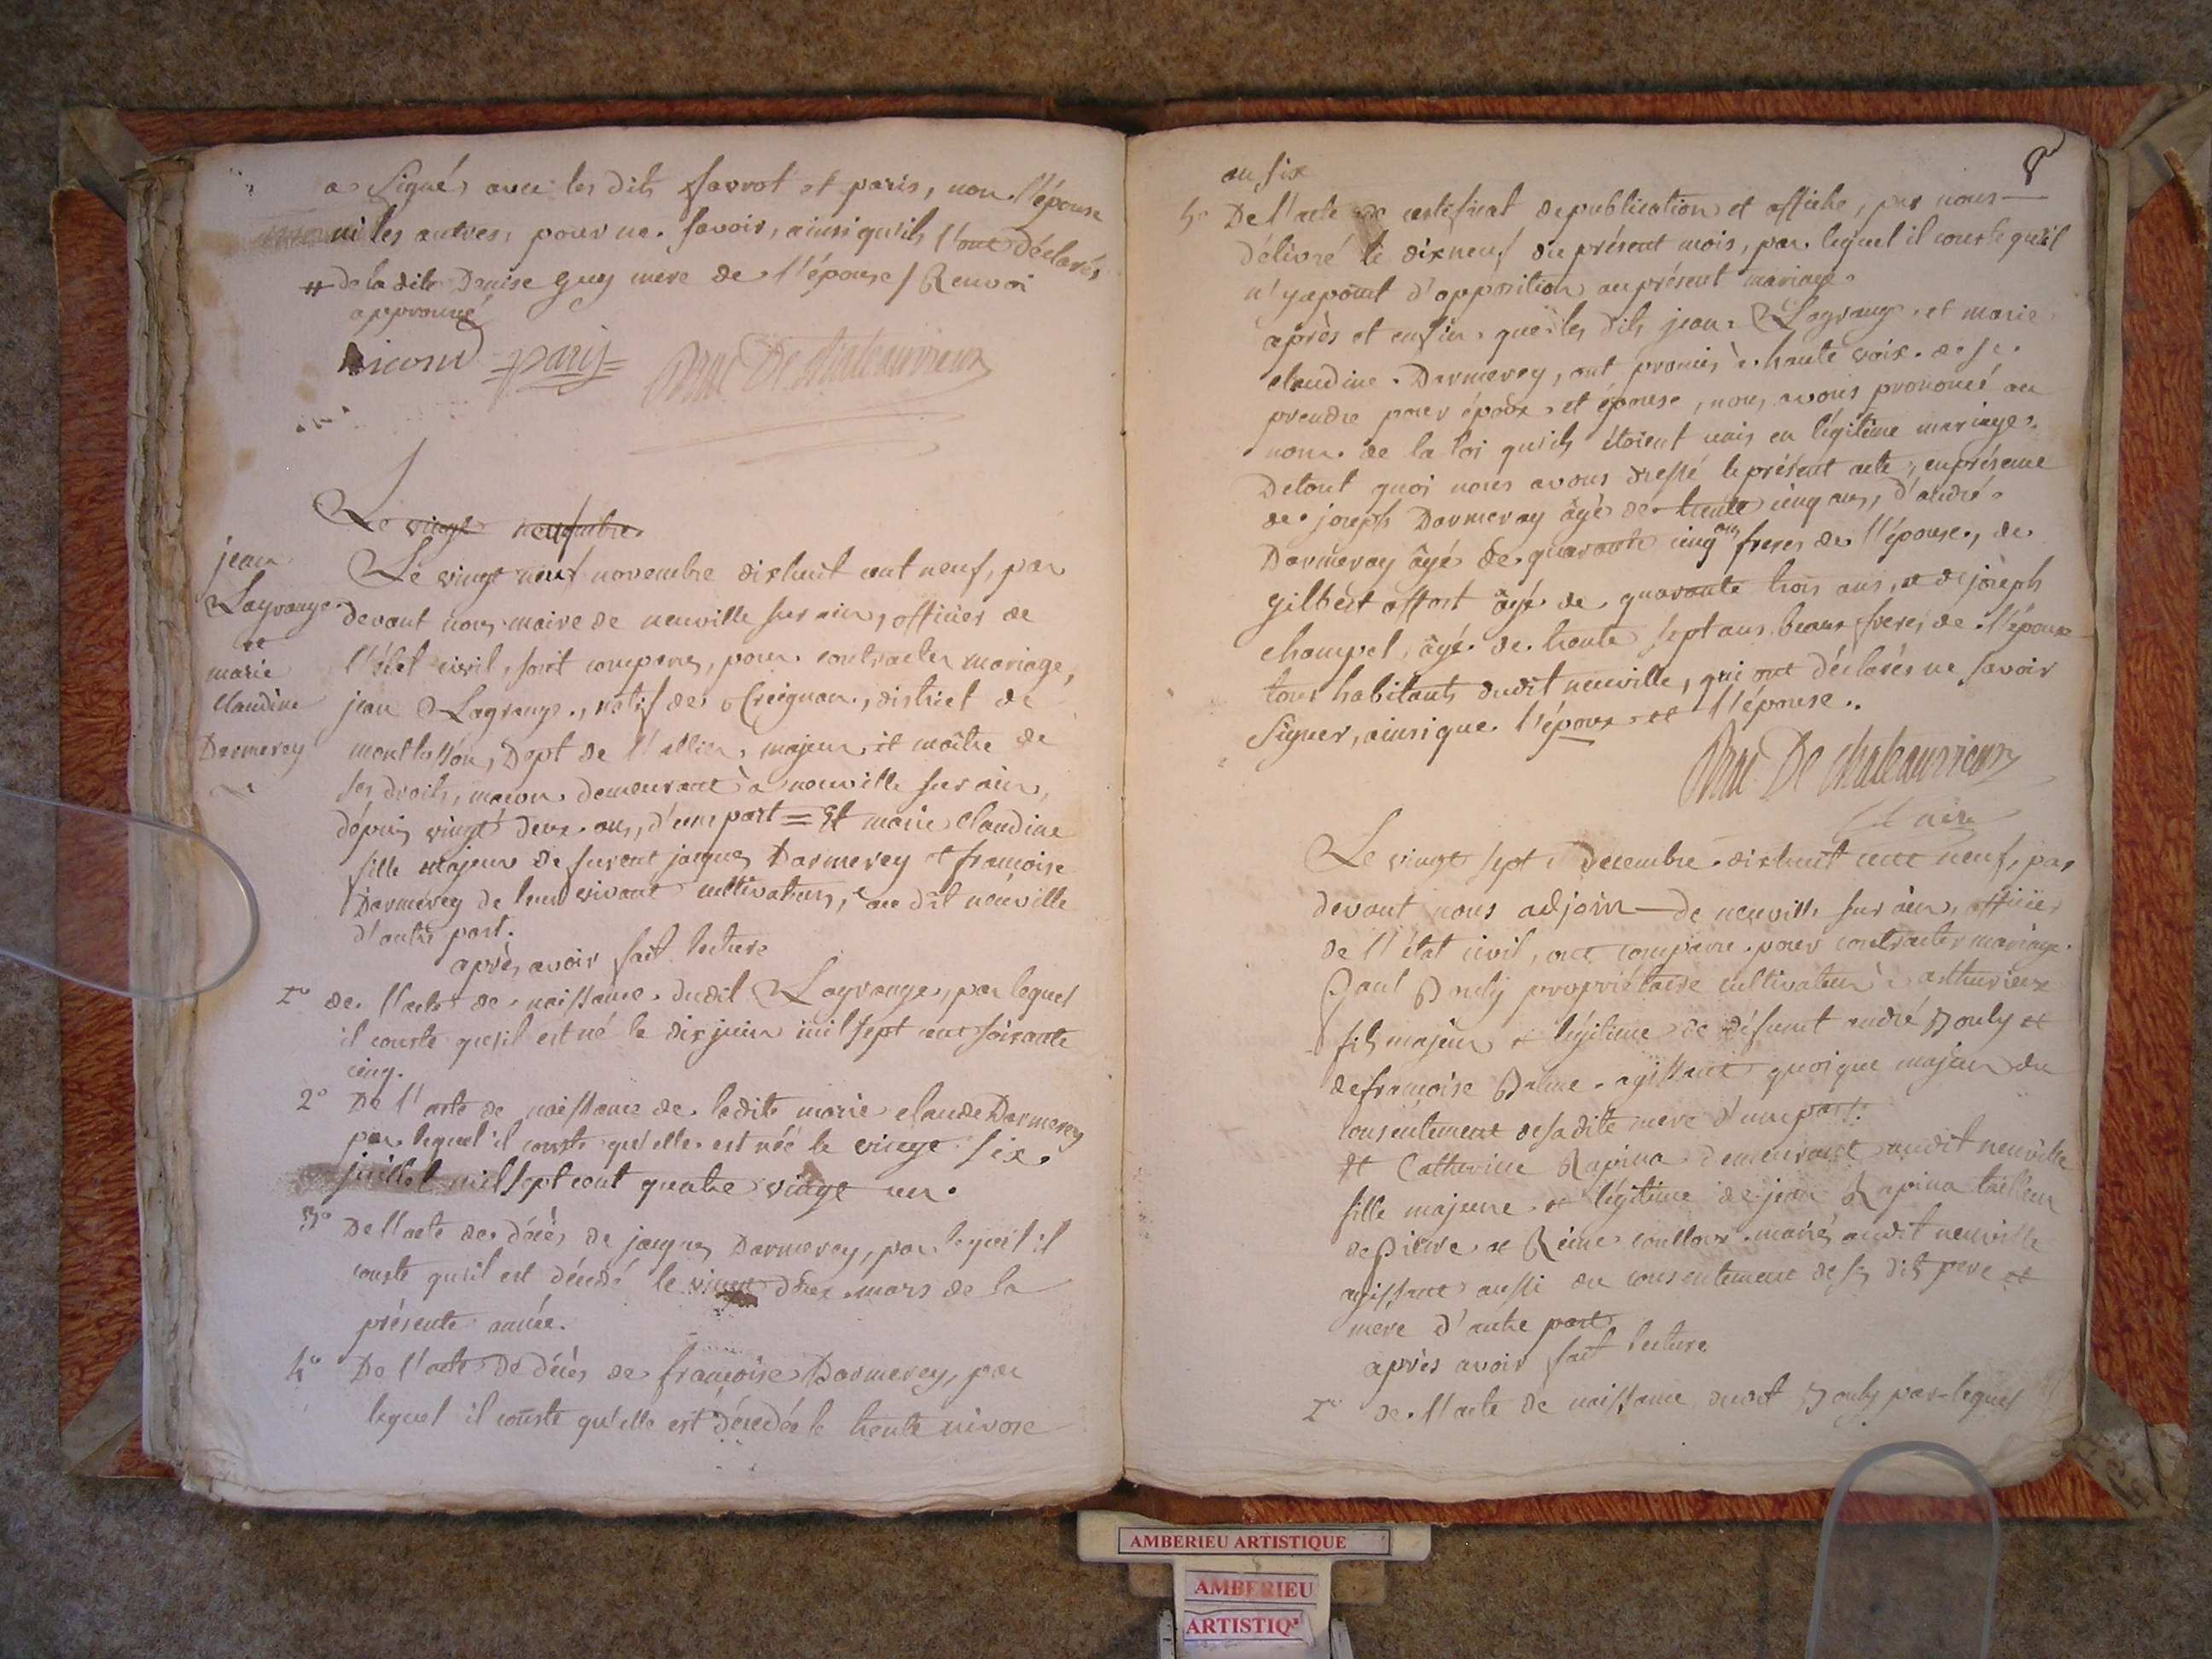 a signés avec les dits favrot et paris, non l'épouse
ni les autres, pour ne savoir, ainsi qu'ils l'ont déclarés
# de la dite Denise guy mere de l'épouse / Renvoi
approuvé
paris
Brac De chateauvieux
Le vingt
jean
Lagrange
et
marie
claudine
Darmerey
Le vingt neuf novembre dixhuit cent neuf, par
devant nous maire de neuville sur ain, officier de
l'état civil, sont comparus, pour contracter mariage,
jean Lagrange, natif de Creignan, district de
montlusson, Dept de l'allier, majeur et maître de
ses droits, maçon demeurant à neuville sur ain,
dépuis vingt deux ans, d'une part = Et marie claudine
fille majeur de furent jacques Darmerey et françoise
Darmerey de leur vivant cultivateurs, au dit neuville
d'autre part.
après avoir fait lecture
1° de l'acte de naissance dudit Lagrange, par lequel
il conste qu'il est né le dix juin mil sept cent soixante
cinq.
2° De l'acte de naissance de ladite marie claude Darmerey
par lequel il conste qu'elle est née le vingt six
juillet mil sept cent quatre vingt un.
3° De l'acte de décès de jacques Darmerey, par lequel il
conste qu'il est décédé le vingt deux mars de la
présente année.
4° De l'acte de décès de françoise Darmerey, par
lequel il conste qu'elle est décedée le trente nivose
8
an six
5° De l'acte de certificat de publication et affiche, par nous
délivré le dixneuf du présent mois, par lequel il conste qu'il
n'y a point d'opposition au présent mariage.
après et enfin que les dits jean Lagrange et marie
claudine Darmerey, ont promis à haute voix de se
prendre pour époux et épouse, nous avons prononcé au
nom de la loi qu'ils étoient unis en légitime mariage.
De tout quoi nous avons dressé le présent acte, en présence
de joseph Darmeray âgé de trente cinq ans, d'andré
Darmeray âgé de quarante cinq ans freres de l'épouse, de
gilbert affort âgé de quarante trois ans, et de joseph
champel, âgé de trente sept ans beaux freres de l'épouse
tous habitants dudit neuville, qui ont déclarés ne savoir
signer, ainsi que l'époux et l'épouse..
Brac De chateauvieux
Maire
Le vingt sept decembre dixhuit cent neuf, par
devant nous adjoin de neuville sur ain, officier
de l'état civil, ont comparu pour contracter mariage
Paul Bouly propriétaire cultivateur à
fils majeur et légitime de défunt andré Bouly et
de françoise Balme agissant quoique majeur du
consentement de sa dite mere d'une part.
Et Catherine Rapina demeurant audit neuville
fille majeure et légitime de jean Rapina tailleur
de Pierre et Reine mariés audit neuville
agissant aussi du consentement de ses dits pere et
mere d'autre part
après avoir fait lecture
1° de l'acte de naissance dudit Bouly par lequel
AMBERIEU ARTISTIQUE
AMBERIEU
ARTISTIQ